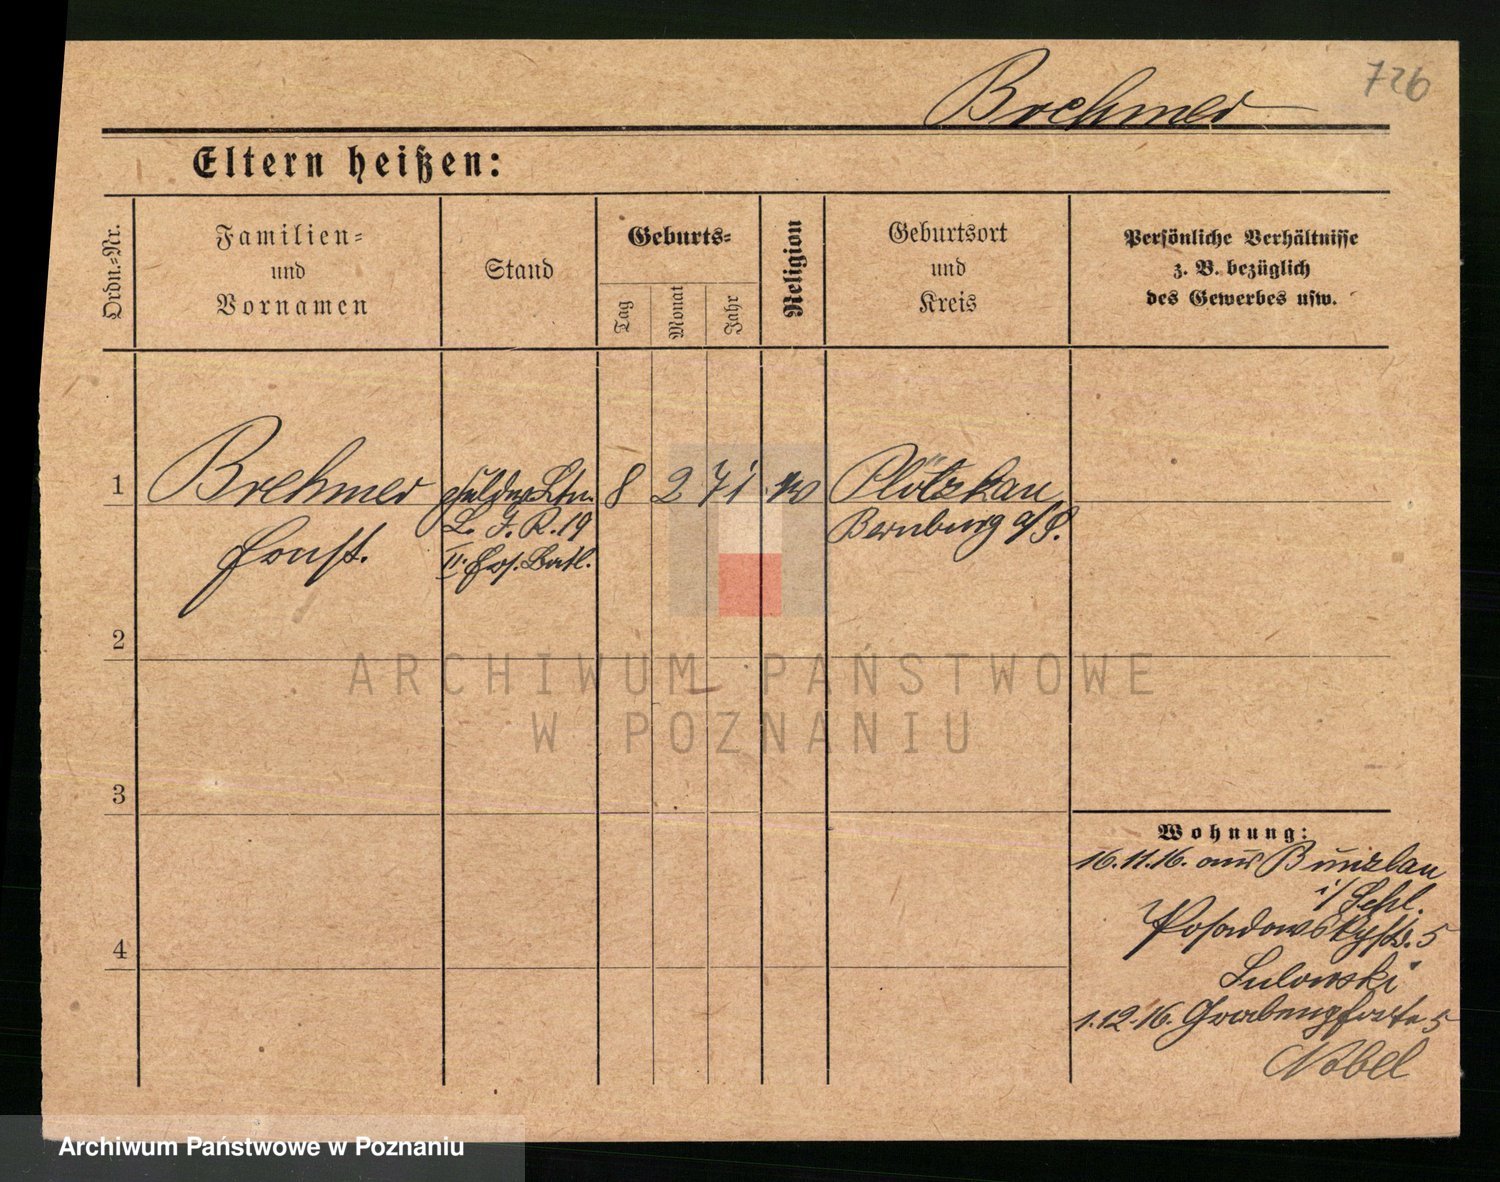 726
Brehmer
Eltern heißen:
Ordn.-Nr.
Familien-
und
Vornamen
Stand
Geburts-
Tag
Monat
Jahr
Religion
Geburtsort
und
Kreis
Persönliche Verhältnisse
z. B. bezüglich
des Gewerbes usw.
1
Brehmer
Ernst.
Feldw. Ltn.
L. J. R. 19
II. Ers. Batl.
8
2
71
Plötzkau
Bernburg a/S.
2
3
4
Wohnung:
16.11.16. aus Bunzlau
i/Schl.
Posadowskystr. 5
Sulowski
1.12.16. Grabenpforte 5
Nobel
ARCHIWUM PAŃSTWOWE
W POZNANIU
Archiwum Państwowe w Poznaniu